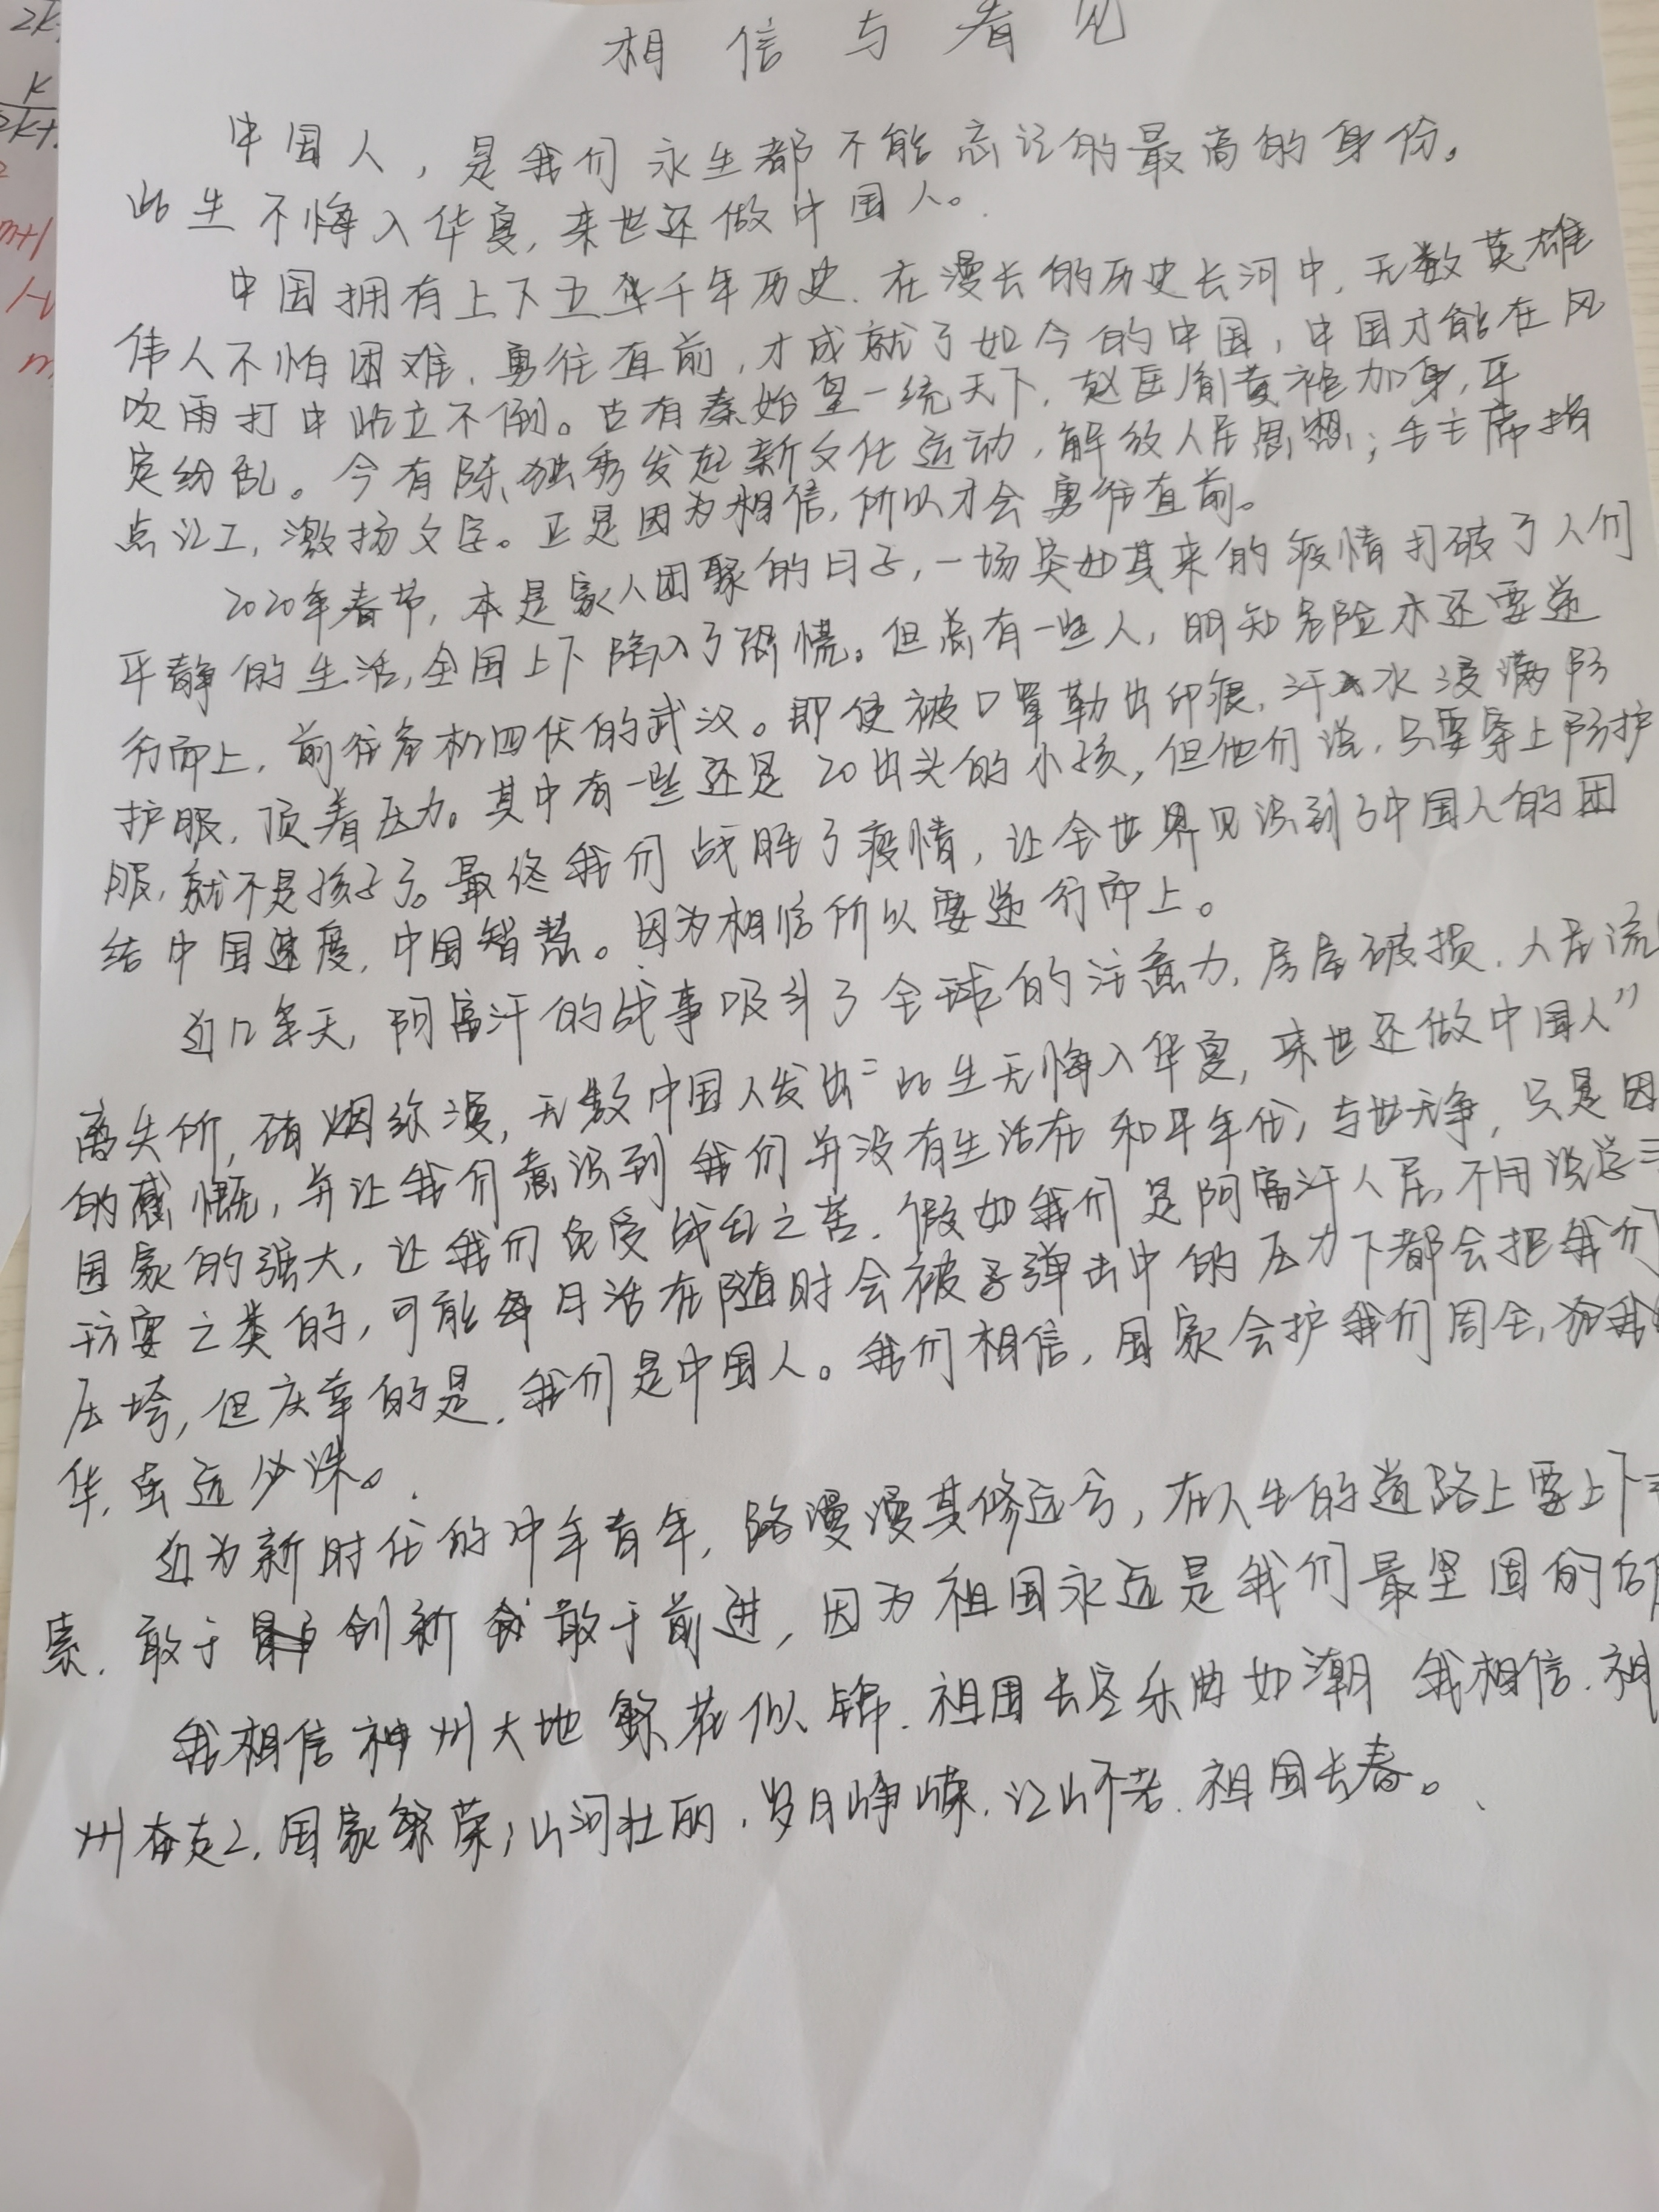 相信与看见
中国人，是我们永生都不能忘记的最高的身份。
此生不悔入华夏，来世还做中国人。
中国拥有上下五千年历史．在漫长的历史长河中，无数英雄
伟人不怕困难、勇往直前，才成就了如今的中国，中国才能在风
吹雨打中屹立不倒。古有秦始皇一统天下，赵匡胤黄袍加身，平
定纷乱。今有陈独秀发起新文化运动，解放人民思想；毛主席指
点江工，激扬文字。正是因为相信，所以才会勇往直前。
2020年春节，本是家人团聚的日子，一场突如其来的疫情打破了人们
平静的生活，全国上下陷入了恐慌。但总有一些人，明知危险亦还要逆
行而上，前往危机四伏的武汉。即使被口罩勒出印痕，汗水浸满防
护服，顶着压力。其中有一些还是20出头的小孩，但他们说，只要穿上防护
服，就不是孩子了。最终我们战胜了疫情，让全世界见识到了中国人的团
结中国速度，中国智慧。因为相信所以要逆行而上。
近几天，阿富汗的战事吸引了全球的注意力，房屋破损．人民流
离失所，硝烟弥漫，无数中国人发出“此生无悔入华夏，来世还做中国人”
的感慨，并让我们意识到我们并没有生活在和平年代，与世无争，只是因
国家的强大，让我们免受战乱之苦．假如我们是阿富汗人民，不用说
玩耍之类的，可能每日活在随时会被子弹击中的压力下都会把我们
压垮，但庆幸的是，我们是中国人。我们相信，国家会护我们周全，犯我
华，虽远必诛。
近为新时代的中年青年，路漫漫其修远兮，在人生的道路上要上下
索．敢于创新敢于前进，因为祖国永远是我们最坚固的
我相信神州大地繁花似锦．祖国长空乐曲如潮 我相信．祖
州奋起，国家繁荣；山河壮丽，岁月峥嵘．江山不老．祖国长春。